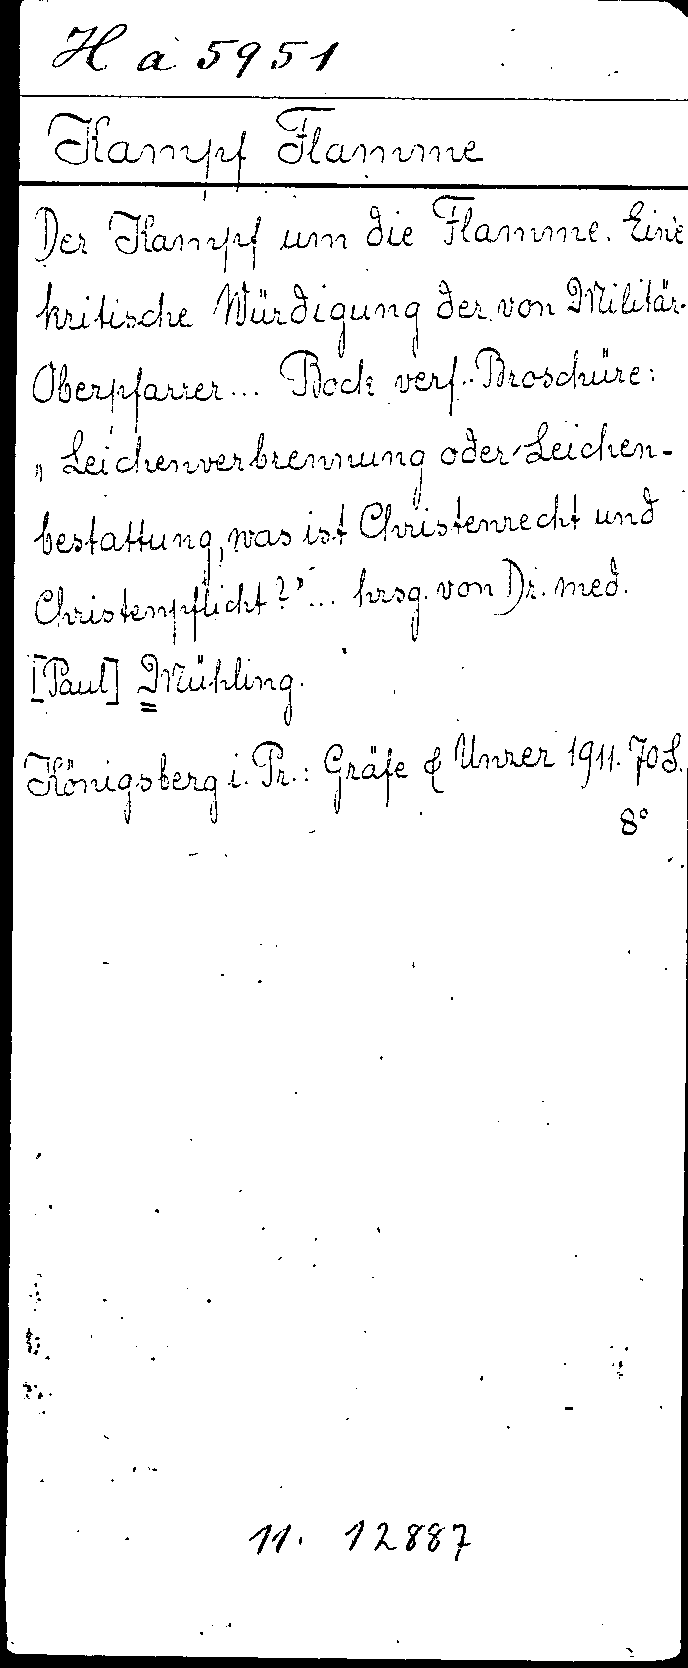 H a 5951
Kampf Flamme
Der Kampf um die Flamme. Eine
kritische Würdigung der von Militär-
Oberpfarrer... Bock verf. Broschüre:
„Leichenverbrennung oder Leichen-
bestattung, was ist Christenrecht und
Christenpflicht?"... hrsg. von Dr. med.
[Paul] Mühling.
Königsberg i. Pr.: Gräfe & Unzer 1911. 70 S.
8°
11. 12887